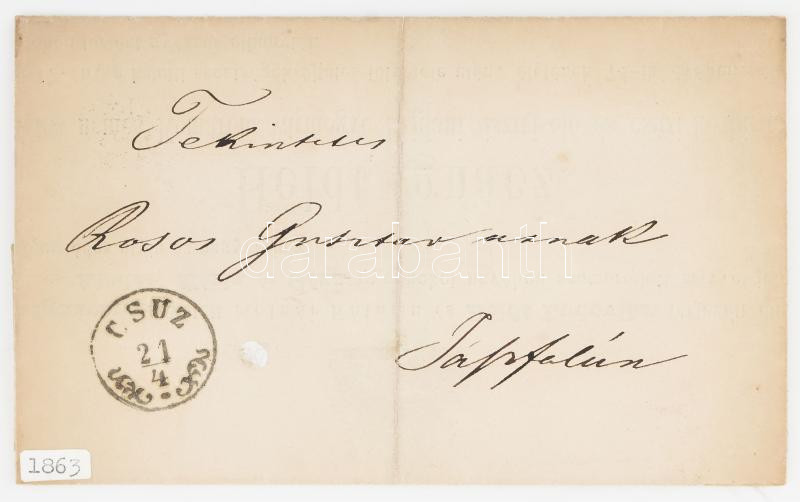 Tekintetes
Rosos Gusztav urnak
darabanth
CSUZ
21
4
Tápfalún
1863